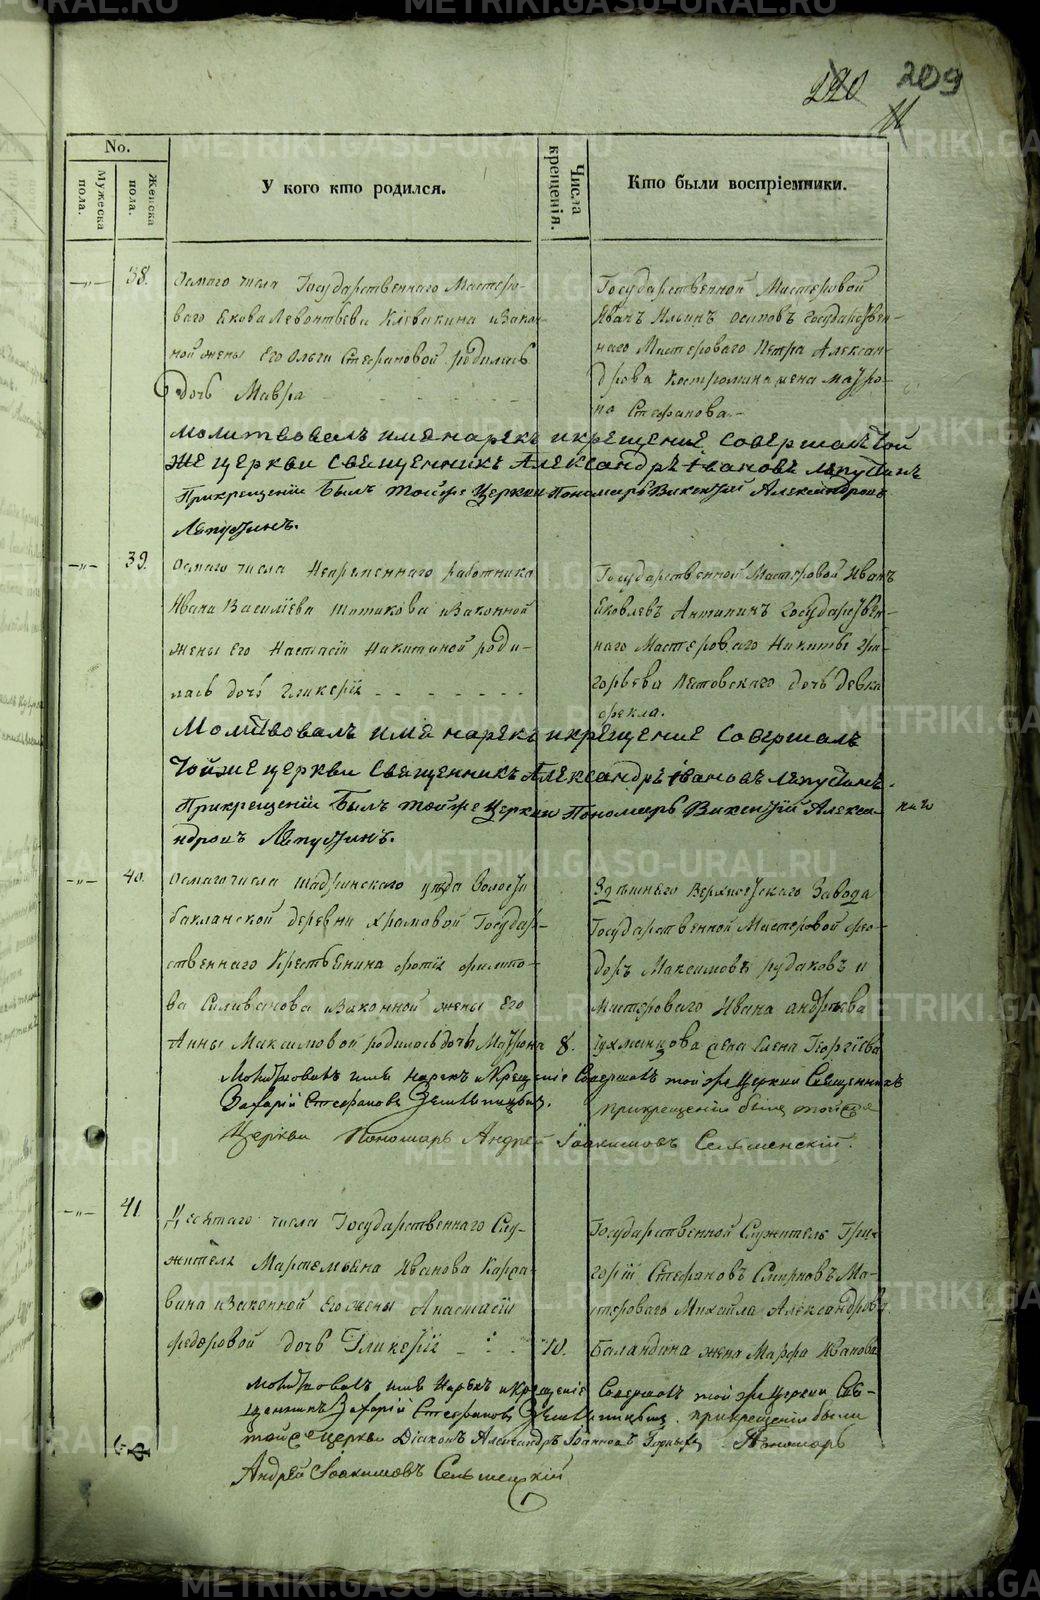 220 209
11
No.
Мужеска пола.
Женска пола.
У кого кто родился.
Числа крещенія.
Кто были воспріемники.
38.
Осмаго числа Государственнаго Мастеро-
ваго Екова Левонтьева Клевакина изакон-
ной жены Его Ольги Стефановой родилась
дочь Мавра
Государственной Мастеровой
Иванъ Ильинъ осиповъ Государствен-
наго Мастероваго Петра Алексан-
дрова Костромина жена матро-
на Стефанова.
Молитвовалъ имя нарекъ и крещение совершалъ той
же церкви священникъ Александръ Івановъ Ляпустинъ
При крещеніи былъ той же церкви Пономарь Викентій Александровъ
Ляпустинъ.
39.
Осмаго числа Непременнаго работника
Ивана Василіева Шотикова изаконной
жены Его Настасіи Никитиной роди-
лась дочь Гликерія
Государственной Мастеровой Иванъ
Яковлевъ Антипинъ Государствен-
наго Мастероваго Никиты Гри-
горьева Пстовскаго дочь девка
Фекла.
Молитвовалъ имя нарекъ и крещение совершалъ
той же церкви священникъ Александръ Івановъ Ляпустинъ.
При крещеніи былъ той же церкви Пономарь Викентій Алекса-
ндровъ Ляпустинъ.
40.
Осмаго числа Шадринскаго уезда волости
бакланской деревни Храмовой Государ-
ственнаго Крестьянина фотія филипо-
ва Силиванова изаконной жены Его
Анны Максимовой родилась дочь Матрона
8.
Здешняго Верхисетскаго Завода
Государственной Мастеровой Фео-
доръ Максимовъ рудаковъ и
Мастероваго Ивана андреева
жена Елена Георгіева
Молитвовалъ имя нарекъ и крещеніе совершалъ той же церкви Священникъ
Захарій Стефановъ
при крещеніи былъ той же
Церкви Пономарь Андрей Іоакимовъ Селменскій.
41.
Десятаго числа Государственнаго Слу-
жителя Мартемьяна Иванова Карса-
вина изаконной Его жены Анастасіи
федоровой дочь Гликерія
10.
Государственной Служитель Гри-
горій Стефановъ Смирновъ Ма-
стероваго Михайла Александрова
Баландина жена Марфа Иванова
Молитвовалъ имя нарекъ и крещеніе совершалъ той же церкви Свя-
щенникъ Захарій Стефановъ при крещеніи были
той же церкви Діаконъ Александръ Іоанновъ Пономарь
Андрей Іоакимовъ Селменскій
METRIKI.GASO-URAL.RU